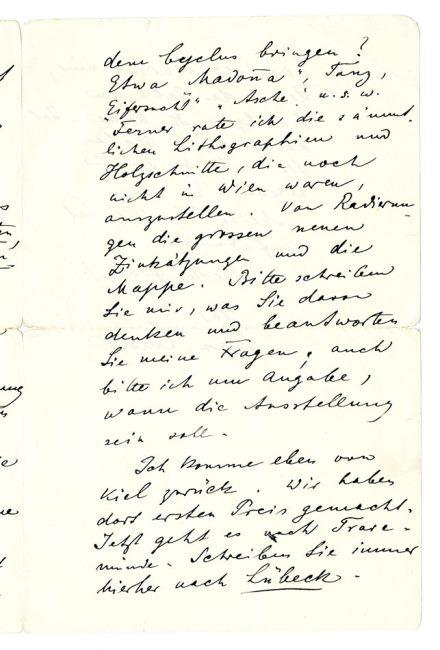 dem Cyclus bringen?
Etwa Madoña", Tanz,
Eifersucht" "Asche" u.s.w.
Ferner rate ich die sämmt-
lichen Lithographien und
Holzschnitte, die noch
nicht in Wien waren,
auszustellen. Von Radierun-
gen die grossen neuen
Zinkätzungen und die
Mappe. Bitte schreiben
Sie mir, was Sie davon
denken und beantworten
Sie meine Fragen, auch
bitte ich um Angabe,
wann die Ausstellung
sein soll.
Ich komme eben von
Kiel zurück. Wir haben
dort ersten Preis gemacht.
Jetzt geht es nach Trave-
münde. Schreiben Sie immer
hierher nach Lübeck.